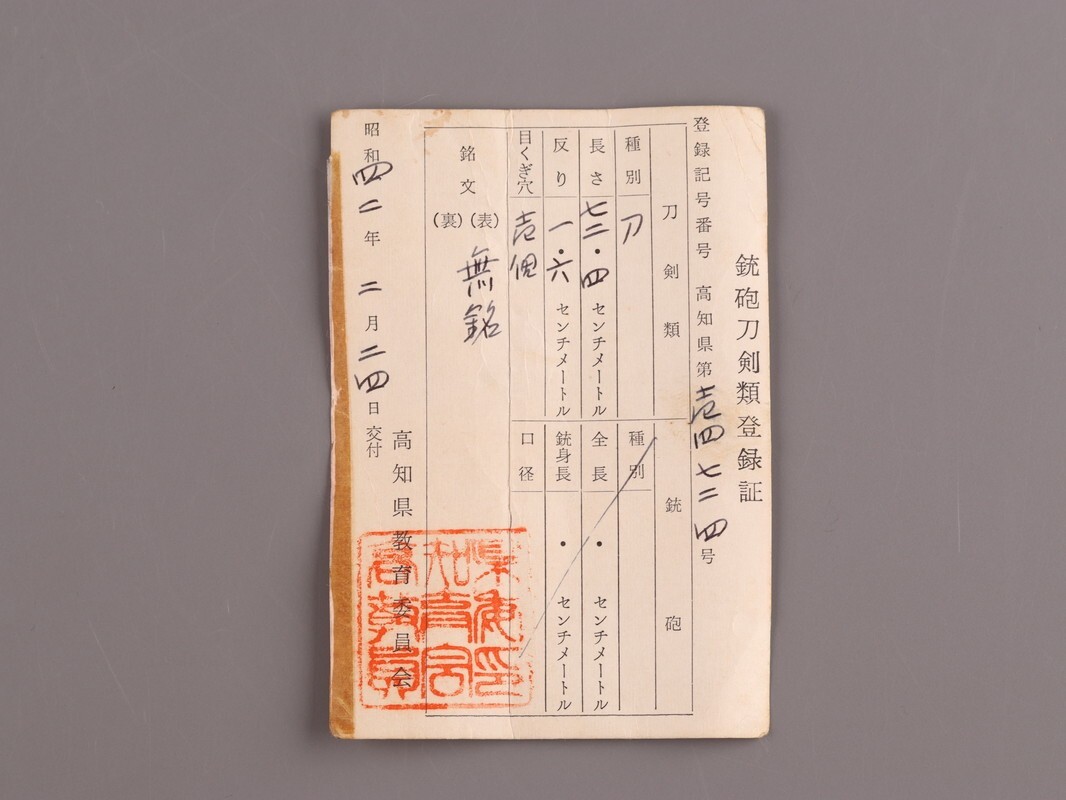 銃砲刀剣類登録証
登録記号番号 高知県第壱四七二四号
刀剣類
種別 刀
長さ 七二・四 センチメートル
反り 一・六 センチメートル
目くぎ穴 壱個
銘文 (表) (裏) 無銘
銃砲
種別
全長 ・ センチメートル
銃身長 ・ センチメートル
口径
高知県教育委員会
昭和四二年二月二四日交付